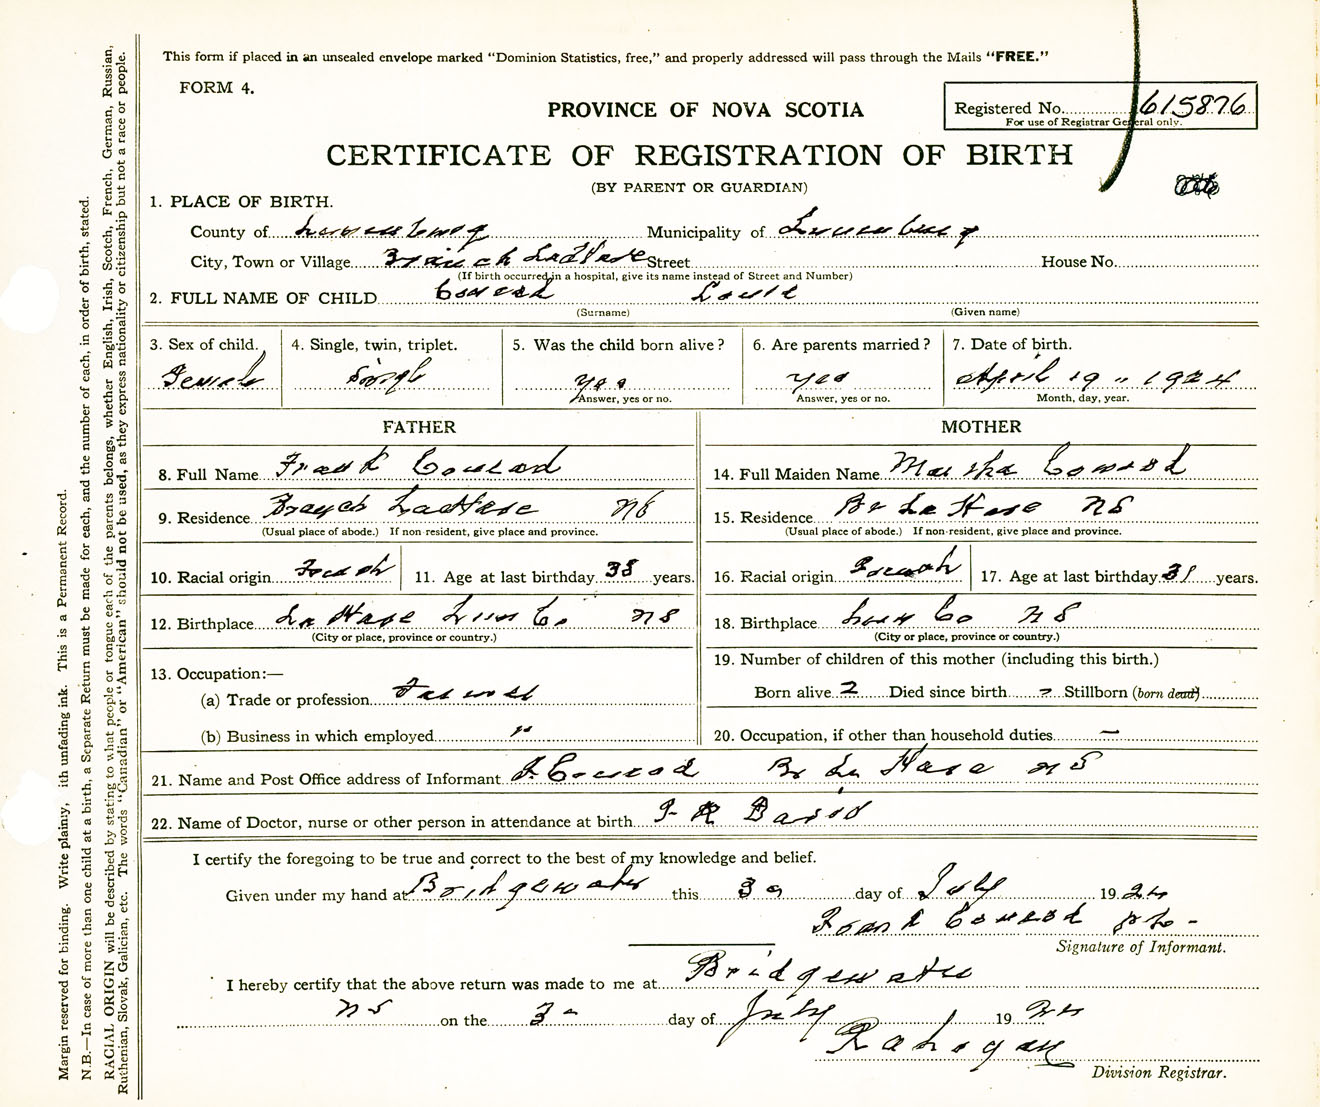 This form if placed in an unsealed envelope marked “Dominion Statistics, free,” and properly addressed will pass through the Mails “FREE.”
FORM 4.
PROVINCE OF NOVA SCOTIA
Registered No. 615876
For use of Registrar General only.
CERTIFICATE OF REGISTRATION OF BIRTH
(BY PARENT OR GUARDIAN)
1. PLACE OF BIRTH.
County of Lunenburg Municipality of Lunenburg
City, Town or Village Branch LaHave Street House No.
(If birth occurred in a hospital, give its name instead of Street and Number)
2. FULL NAME OF CHILD Conrad
(Surname) (Given name)
3. Sex of child. 4. Single, twin, triplet. 5. Was the child born alive? 6. Are parents married? 7. Date of birth.
Female Single yes yes April 19 " 1924
Answer, yes or no. Answer, yes or no. Month, day, year.
FATHER MOTHER
8. Full Name Frank Conrad 14. Full Maiden Name Martha Conrad
9. Residence Branch LaHave NS 15. Residence Br La Have NS
(Usual place of abode.) If non-resident, give place and province. (Usual place of abode.) If non-resident, give place and province.
10. Racial origin French 11. Age at last birthday 38 years. 16. Racial origin French 17. Age at last birthday 31 years.
12. Birthplace La Have Lun Co. NS 18. Birthplace Lun Co NS
(City or place, province or country.) (City or place, province or country.)
13. Occupation:— 19. Number of children of this mother (including this birth.)
(a) Trade or profession Farmer Born alive 2 Died since birth Stillborn (born dead)
(b) Business in which employed " 20. Occupation, if other than household duties —
21. Name and Post Office address of Informant F. Conrad Br La Have NS
22. Name of Doctor, nurse or other person in attendance at birth
I certify the foregoing to be true and correct to the best of my knowledge and belief.
Given under my hand at Bridgewater this 30 day of July 19 24
Frank Conrad
Signature of Informant.
I hereby certify that the above return was made to me at Bridgewater
NS on the 30 day of July 19 24
Division Registrar.
Margin reserved for binding. Write plainly, ith unfading ink. This is a Permanent Record.
N.B.—In case of more than one child at a birth, a Separate Return must be made for each, and the number of each, in order of birth, stated.
RACIAL ORIGIN will be described by stating to what people or tongue each of the parents belongs, whether English, Irish, Scotch, French, German, Russian,
Ruthenian, Slovak, Galician, etc. The words “Canadian” or “American” should not be used, as they express nationality or citizenship but not a race or people.